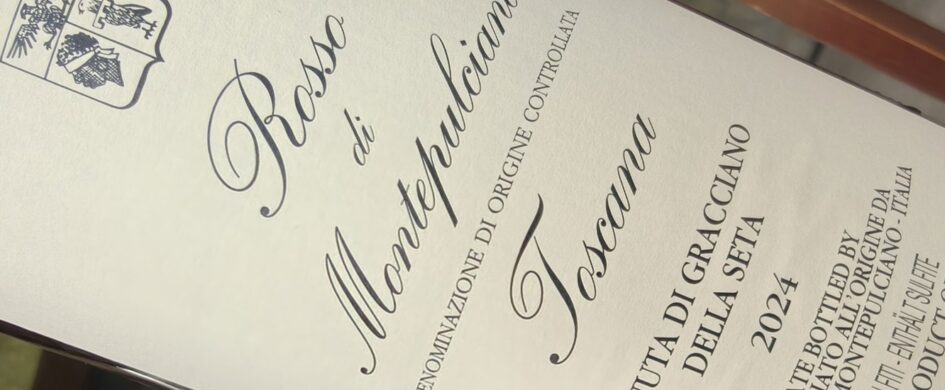 Rosso
di
Montepulciano
DENOMINAZIONE DI ORIGINE CONTROLLATA
Toscana
TENUTA DI GRACCIANO
DELLA SETA
2024
BOTTLED BY
ALL'ORIGINE DA
MONTEPULCIANO - ITALIA
ENTHÄLT SULFITE